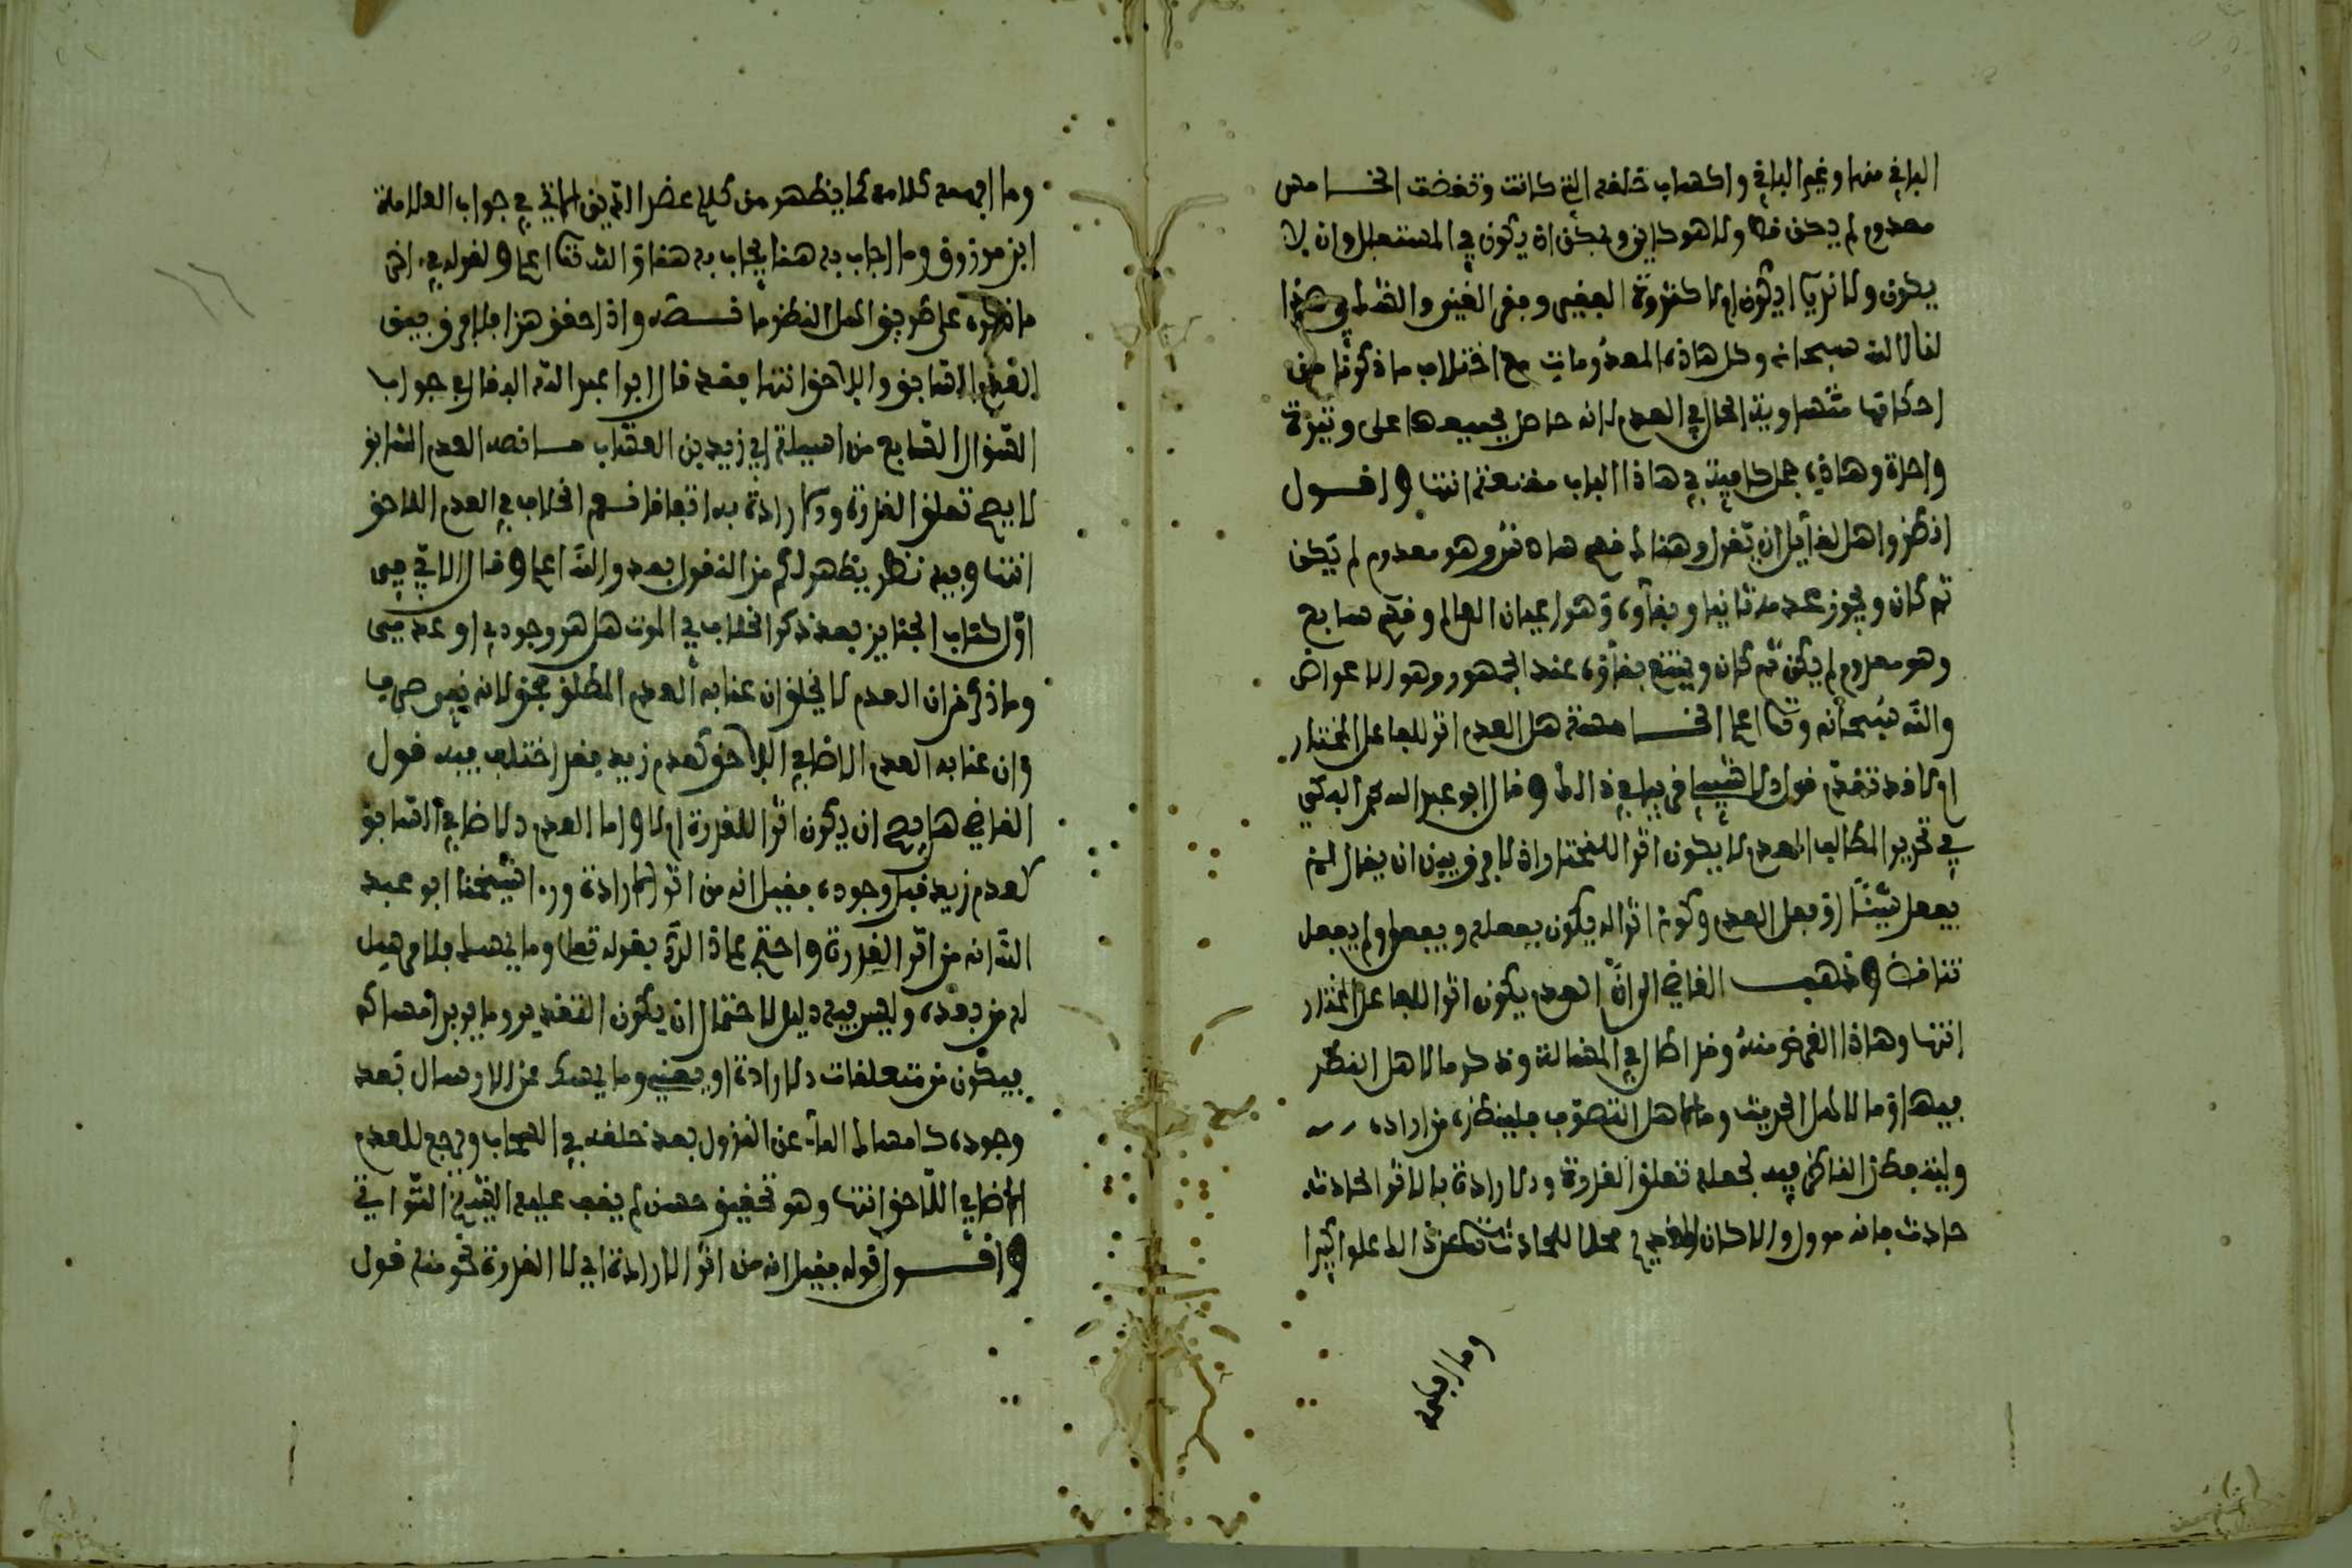 الباقي منها وغير الباقي واكساب خلقه التي كانت وتقضت الخامس
معدوم لم يكن قط ولا هو كاين ويمكن ان يكون في المستقبل وان لا
يكون ولا ندري ايكون ام لا كثروة الفقير وفقر الغني والله في هذا
لنا الله سبحانه وكل هاذه المعدومات مع اختلاف ما ذكرنا من
احكامها متساوية الحال في العدم لانه حاصل لجميعها على وتيرة
واحدة وهاذه جمل كافية في هاذا الباب مقنعة انتهى واقول
انظر واهل لقايل ان يقول وهنا قسم سادس وهو معدوم لم يكن
ثم كان ويجوز عدمه ثانيا وبقاؤه وهو اعيان العالم وقسم سابع
وهو معدوم لم يكن ثم كان ويمتنع بقاؤه عند الجمهور وهو الاعراض
والله سبحانه وتعالى اعلم الخامسة هل العدم اثر للفاعل المختار
ام لا قد تقدم قول الشيباني في ذالك وقال ابو عبد الله محمد البكي
في تحرير المطالب العدم لا يكون اثرا للمختار اذ لا فرق بين ان يقال لم
يفعل شيئا او فعل العدم وكونه اثرا له يكون بفعله ويفعل ولم يفعل
تناقض وذهب القاضي الى ان العدم يكون اثرا للفاعل المختار
انتهى وهاذا الغرض منه وقد اطال في المسالة وذكر ما لاهل النظر
فيها وما لاهل الحديث وما لاهل التصوف فلينظره من اراده
ولينه نظر الناظر فيه لجعله تعلق القدرة والارادة بالاثر الحادث
حادث فانه موول والا كان القديم محلا للحادث تعالى عن ذالك علوا كبيرا
وما افهمه
وما افهمه كلامه كما يظهر من كلام عضد الدين الاتي في جواب العلامة
ابن مرزوق وما اجاب به هنا يجاب به هناك والله تعالى اعلم ولقوله في اخر
ما ذكره على طريق اهل النظر ما نصه واذا حقق هذا فلا فرق بين
العدم السابق واللاحق انتهى فقد قال ابو عبد الله البقال في جواب
السؤال السابع من اسيلة ابي زيد بن العقاب ما نصه العدم السابق
لا يصح تعلق القدرة والارادة به اتفاقا نعم الخلاف في العدم اللاحق
انتهى وفيه نظر يظهر لك من النقول بعد والله اعلم وقال الابي في
اول كتاب الجنايز بعد ذكر الخلاف في الموت هل هو وجودي او عدمي
وما ذكر من ان العدم لا يخلق ان عنى به العدم المطلق فحق لانه نفي صرف
وان عنى به العدم الاضافي اللاحق كعدم زيد فقد اختلف فيه قول
القاضي هل يصح ان يكون اثرا للقدرة ام لا واما العدم الاضافي السابق
كعدم زيد قبل وجوده فقيل انه من اثر الارادة ورد شيخنا ابو عبد
الله انه من اثر القدرة واحتج على هاذا الرد بقوله تعالى وما يمسك فلا مرسل
له من بعده وليس فيه دليل لاحتمال ان يكون التقدير وما يريد امساكه
فيكون من متعلقات الارادة او يعني وما يمسك عن الارسال بعد
وجوده كامساك الماء عن النزول بعد خلقه في السحاب ويرجع للعدم
الاضافي اللاحق انتهى وهو تحقيق حسن لم يقف عليه الشيخ التواتي
واقول قوله فقيل انه من اثر الارادة اي لا القدرة نحو منه قول